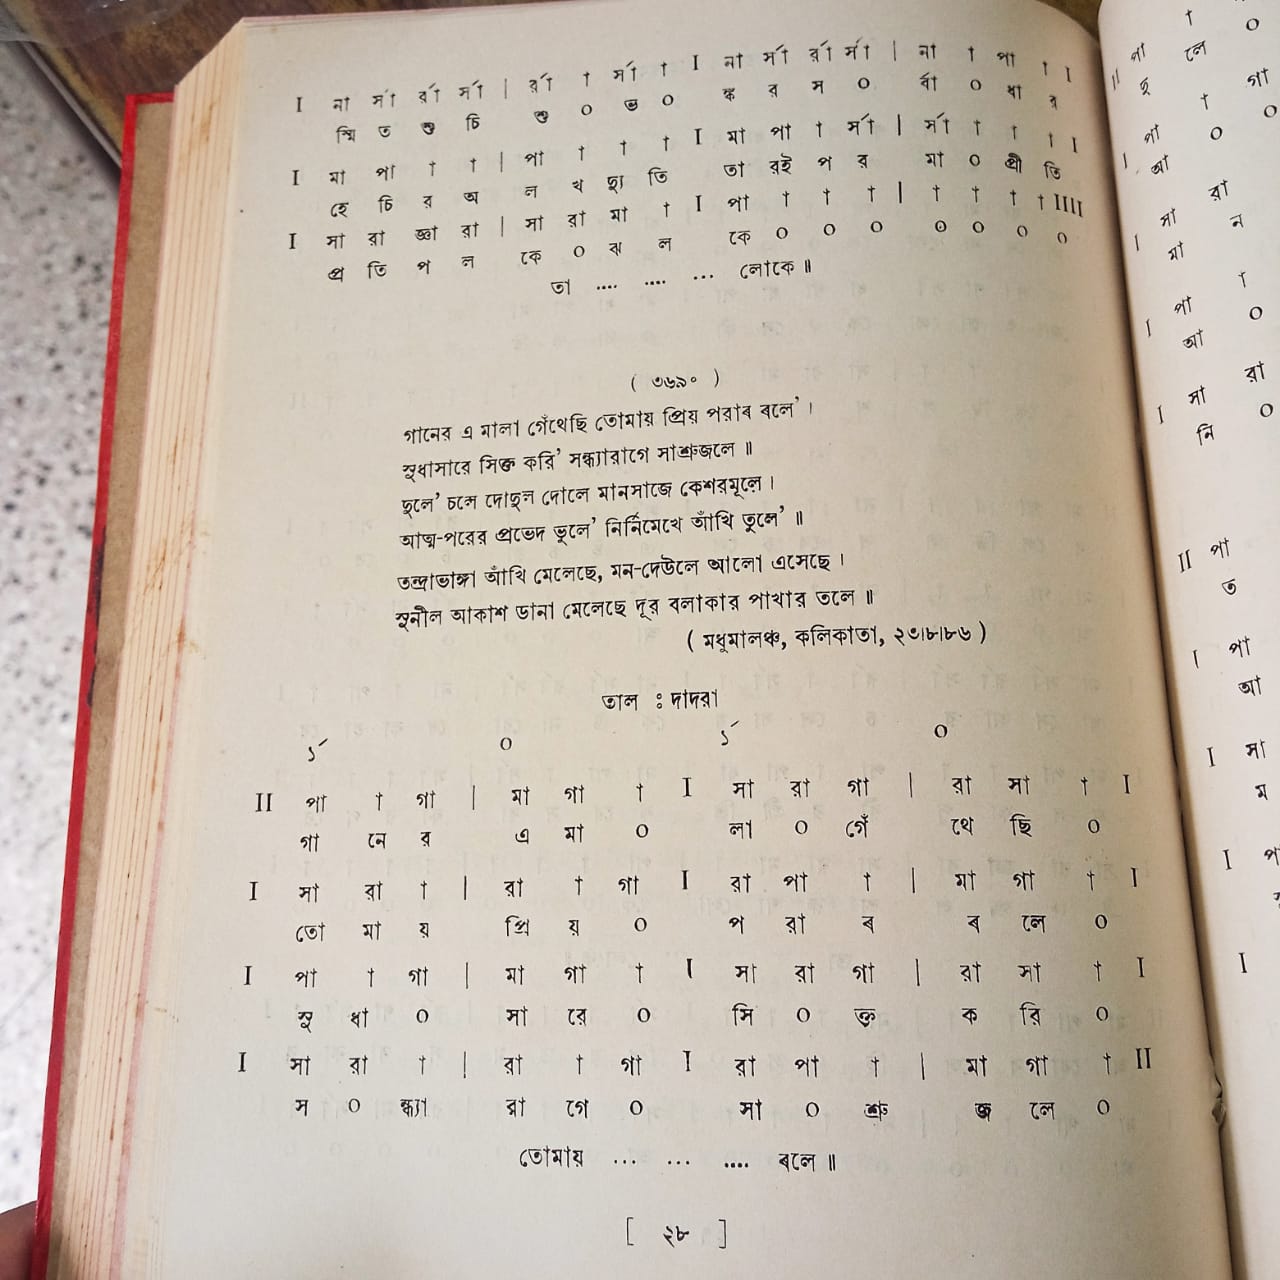 I না র্সা র্রা র্সা | র্রা † র্সা † I না র্সা র্রা র্সা | না † পা † I
স্মি ত শু চি শু ০ ভ ০ ঙ্ক র স ০ র্বা ০ ধা র
I মা পা † † | পা † † † I মা পা † র্সা | র্সা † † † I
হে চি র অ ল খ দ্যু তি তা রই প র মা ০ প্রী তি
I সা রা জ্ঞা রা | সা রা মা † I পা † † † | † † † † IIII
প্র তি প ল কে ০ ঝ ল কে ০ ০ ০ ০ ০ ০ ০
তা .... .... ... লোকে ॥
( ৩৬৯০ )
গানের এ মালা গেঁথেছি তোমায় প্রিয় পরাব বলে' ।
সুধাসারে সিক্ত করি' সন্ধ্যারাগে সাশ্রুজলে ॥
দুলে' চলে দোদুল দোলে মানসাজে কেশরমূলে ।
আত্ম-পরের প্রভেদ ভুলে' নির্নিমেখে আঁখি তুলে' ॥
তন্দ্রাভাঙ্গা আঁখি মেলেছে, মন-দেউলে আলো এসেছে ।
সুনীল আকাশ ডানা মেলেছে দূর বলাকার পাখার তলে ॥
( মধুমালঞ্চ, কলিকাতা, ২৩।৮।৮৬ )
তাল : দাদরা
১´ ০ ১´ ০
II পা † গা | মা গা † I সা রা গা | রা সা † I
গা নে র এ মা ০ লা ০ গেঁ থে ছি ০
I সা রা † | রা † গা I রা পা † | মা গা † I
তো মা য় প্রি য় ০ প রা ব ব লে ০
I পা † গা | মা গা † I সা রা গা | রা সা † I
সু ধা ০ সা রে ০ সি ০ ক্ত ক রি ০
I সা রা † | রা † গা I রা পা † | মা গা † II
স ০ ন্ধ্যা রা গে ০ সা ০ শ্রু জ লে ০
তোমায় ... ... .... বলে ॥
[ ২৮ ]